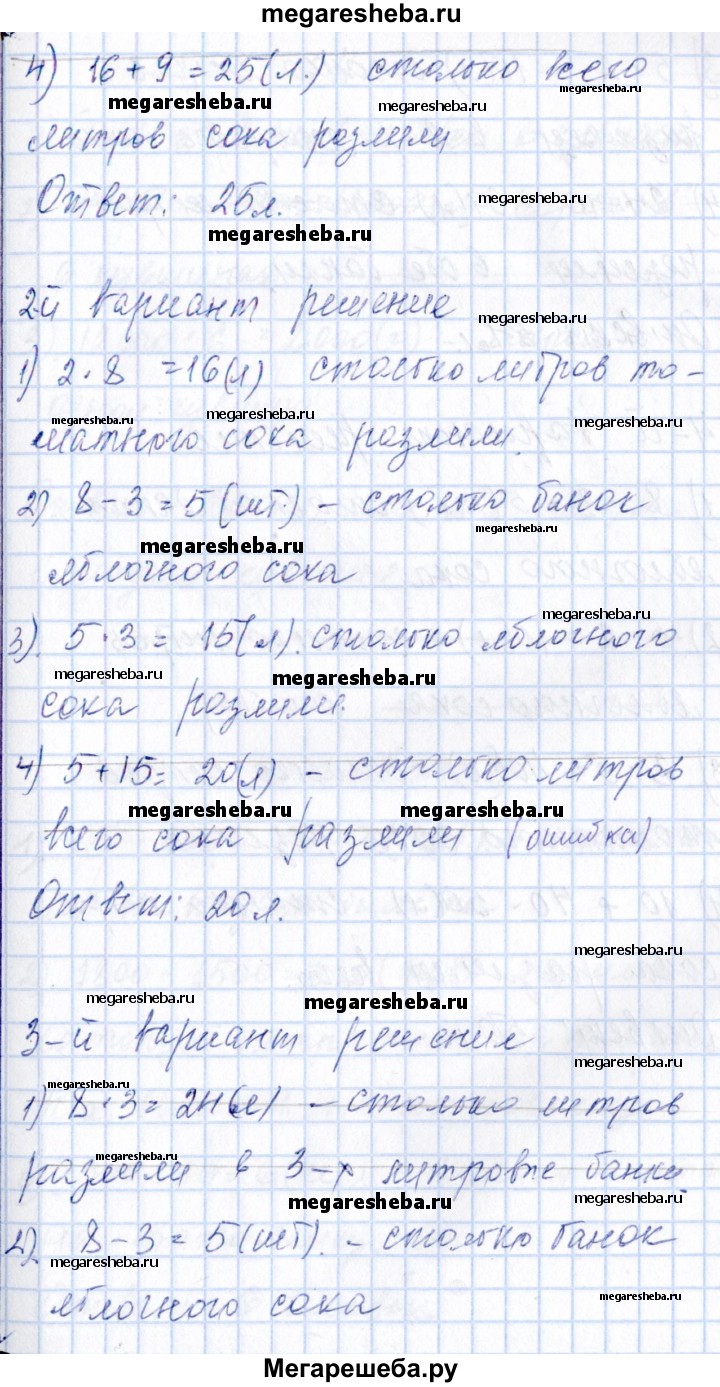 megaresheba.ru
4) 16 + 9 = 25 (л.) столько всего
megaresheba.ru megaresheba.ru
литров сока розлили
Ответ: 25 л.
megaresheba.ru
megaresheba.ru
2-й вариант решение
megaresheba.ru
1) 2 · 8 = 16 (л) столько литров то-
megaresheba.ru megaresheba.ru megaresheba.ru
матного сока розлили.
2) 8 - 3 = 5 (шт.) - столько банок
megaresheba.ru
megaresheba.ru
яблочного сока
megaresheba.ru
3). 5 · 3 = 15 (л). столько яблочного
megaresheba.ru megaresheba.ru
сока розлили.
4) 5 + 15 = 20 (л) - столько литров
megaresheba.ru megaresheba.ru
всего сока разлили (ошибка)
Ответ: 20 л.
megaresheba.ru
megaresheba.ru megaresheba.ru
3-й вариант решение
megaresheba.ru
megaresheba.ru
1) 8 · 3 = 24 (л) - столько литров
megaresheba.ru
разлили в 3-х литровые банки
megaresheba.ru
2) 8 - 3 = 5 (шт). - столько банок
megaresheba.ru
яблочного сока
megaresheba.ru
Мегарешеба.ру